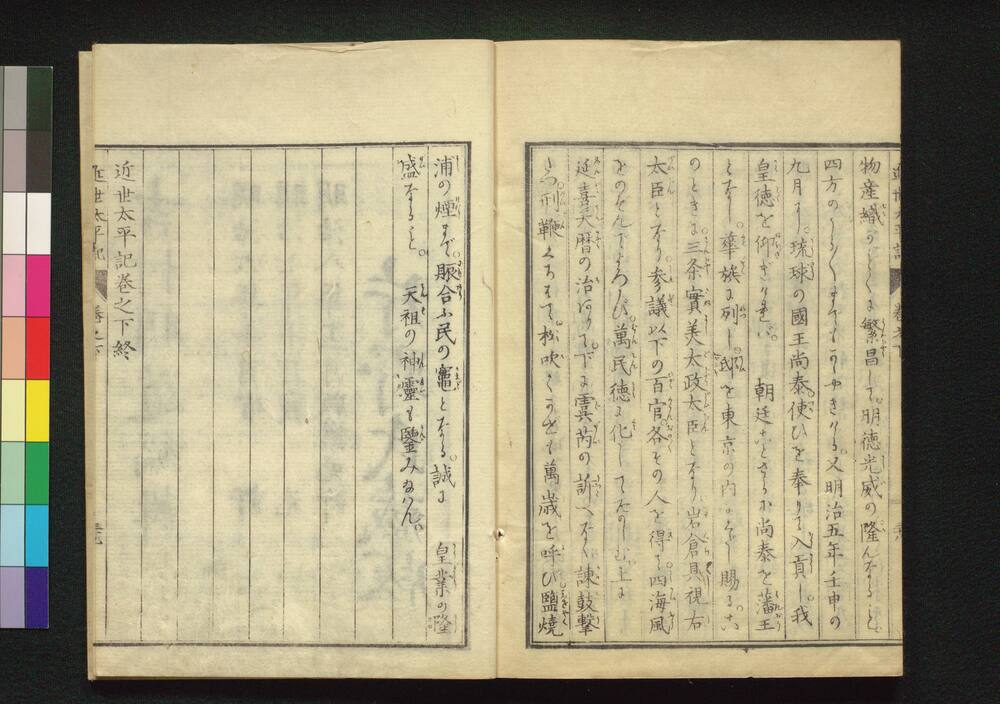 物産織がごとくに繁昌して。明徳光威の隆んなること。
四方の かゞやきける。又明治五年壬申の
九月に。琉球の國王尚泰使ひを奉りて入貢し。我
皇徳を仰ぎければ。 朝廷ことさらに尚泰を藩王
となし。華族に列し。邸を東京の内にて賜る。こ
のときに三条實美太政大臣となり。岩倉具視し右
大臣となり。参議以下の百官各その人を得て。四海風
をのぞんでよろこび。萬民徳に化して 上に
延喜天暦の治ありて。下に虞芮の訴へなく諫鼓撃
刑鞭くちはて。松吹く も萬歳を呼び。鹽焼
浦の煙まで。賑合ふ民の竈となる。誠に 皇業の隆
盛なること。 天祖の神靈も鑒みなはん。
近世太平記巻之下終
近世太平記 巻之下